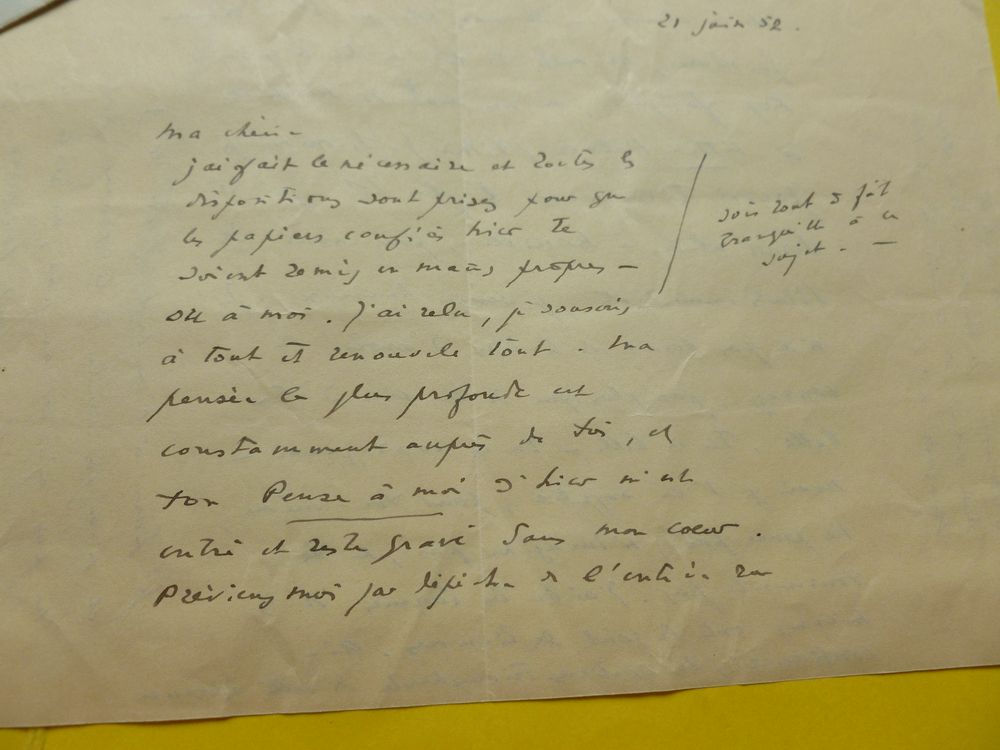 21 juin 52.
ma chérie
j'ai fait le nécessaire et toutes les
dispositions sont prises pour que
les papiers confiés hier te
soient remis en mains propres –
ou à moi. J'ai relu, je souscris
à tout et renouvelle tout. Ma
pensée la plus profonde est
constamment auprès de toi, et
ton Pense à moi d'hier m'est
entré et reste gravé dans mon coeur.
Préviens moi par dépêche de l'entrée en
sois tout à fait
tranquille à ce
sujet. –